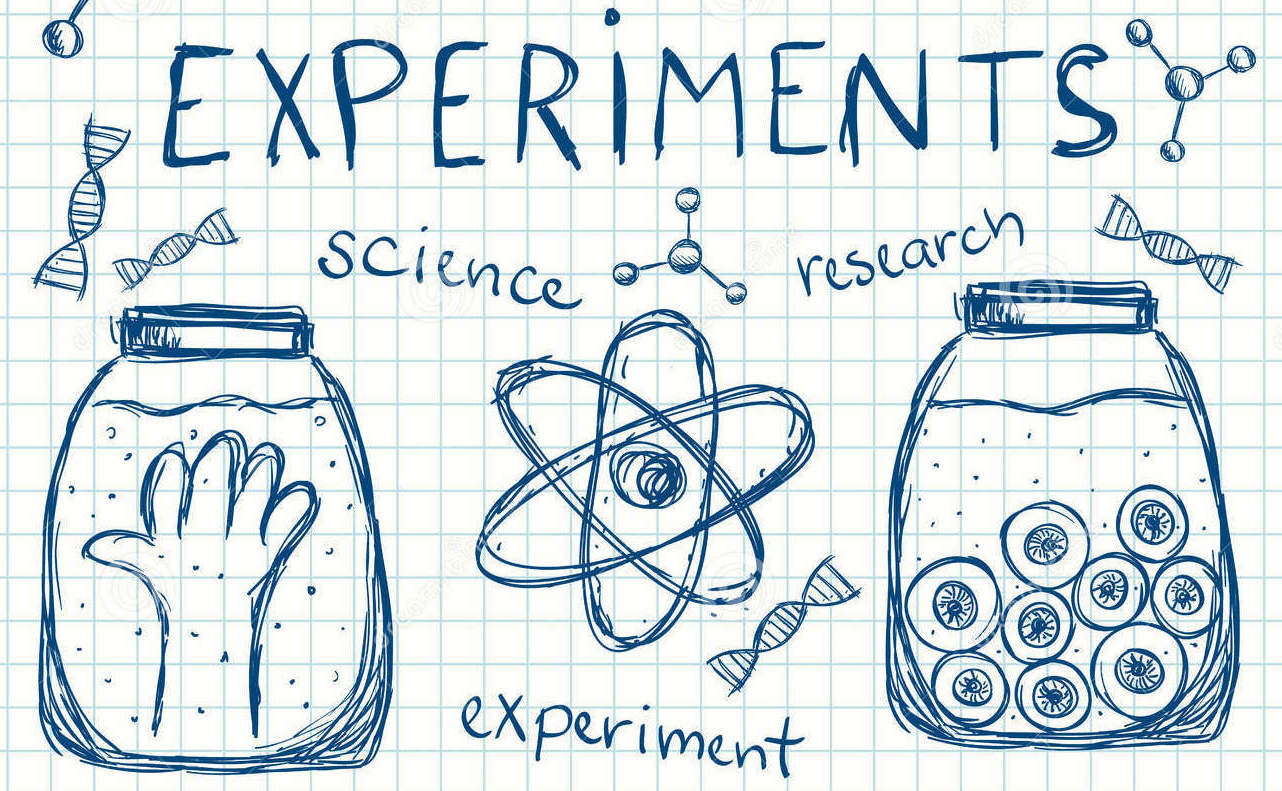 EXPERIMENTS
science research
experiment